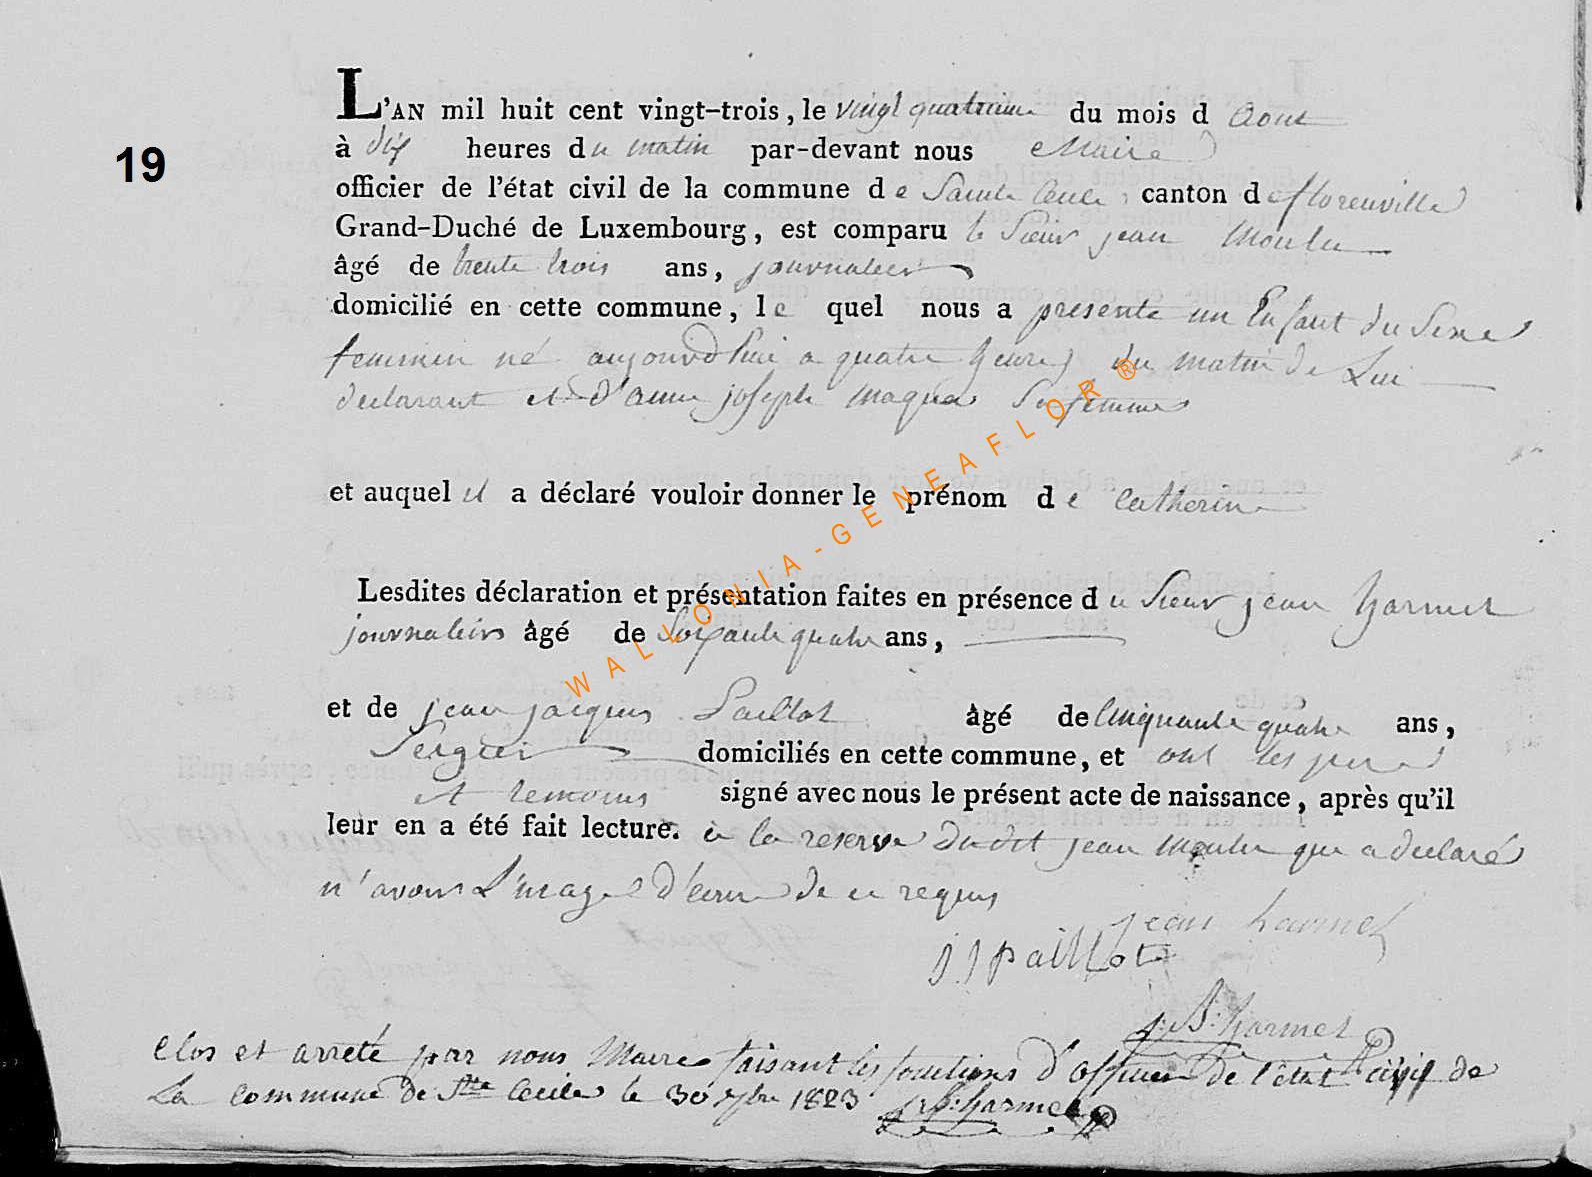 19
L'AN mil huit cent vingt-trois, le vingt quatrieme du mois d aout
à dix heures du matin par-devant nous Maire
officier de l'état civil de la commune de Sainte Cecile, canton de florenville
Grand-Duché de Luxembourg, est comparu le Sieur jean Moulu
âgé de trente trois ans, journalier
domicilié en cette commune, le quel nous a presenté un Enfant du Sexe
feminin né aujourd'hui a quatre heures du matin de Lui
declarant et d'anne joseph maquá Sa femme
et auquel il a déclaré vouloir donner le prénom de Catherine
Lesdites déclaration et présentation faites en présence du Sieur jean harmel
journaliers âgé de Soixante quatre ans,
et de jean jacques Paillot âgé de Cinquante quatre ans,
Sergier domiciliés en cette commune, et ont les pere
et temoins signé avec nous le présent acte de naissance, après qu'il
leur en a été fait lecture. à la reserve dudit jean Moulu que a declaré
n'avoir L'usage d'ecrire de ce requis
jean harmel
J J paillot
J: B: harmel
Clos et arreté par nous Maire faisant les fonctions d'officier de l'état civil de
La commune de Ste Cecile le 30 1823
J: B: harmel
WALLONIA-GENEAFLOR®